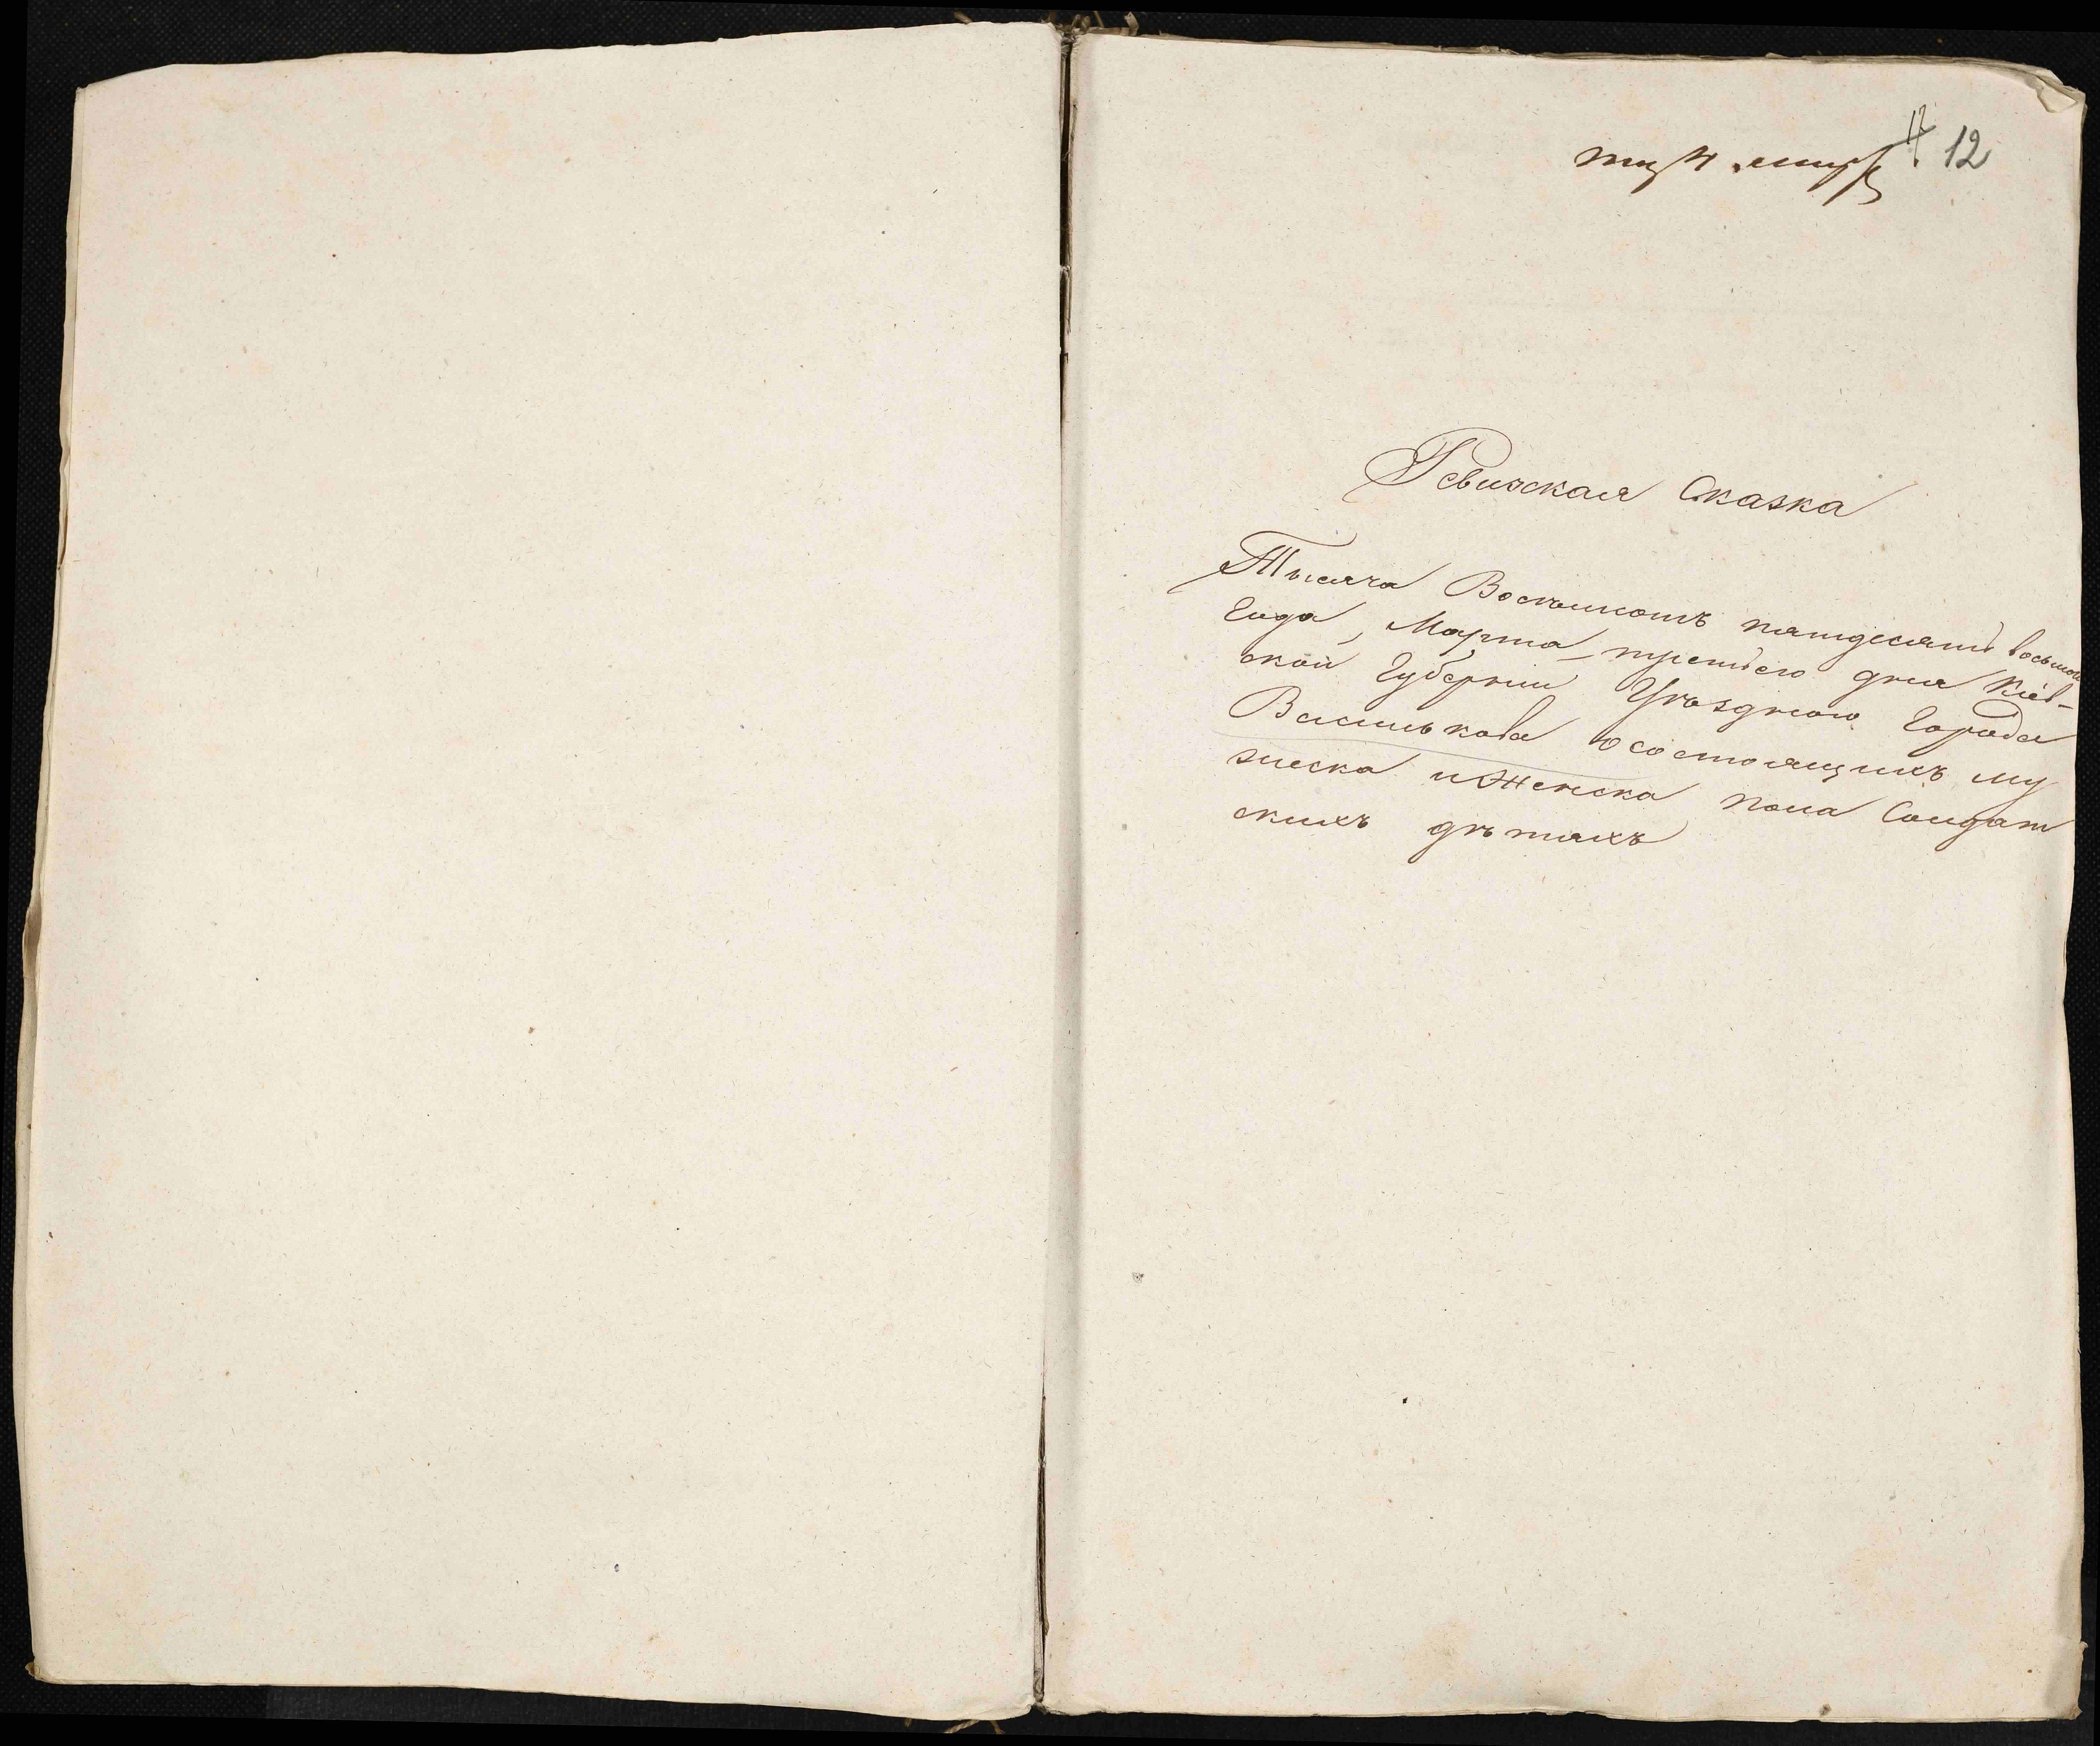 12
Ревизская Сказка
Тысяча Восемьсотъ пятдесятъ восьмого
Года, Марта третьего дня Кіев-
ской Губерніи Уѣзднаго Города
Василькова о состоящихъ му
жеска и Женска пола Солдат
скихъ дѣтяхъ